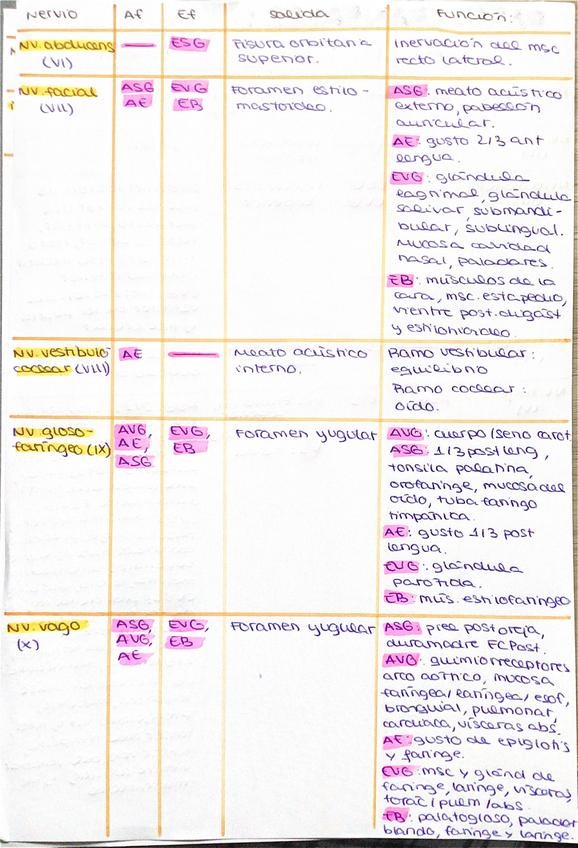 Nervio Af Ef Salida Función:
NV. abducens (VI) — ESG Fisura orbitaria superior. Inervación del msc
recto lateral.
NV. facial (VII) ASG AE EVG EB Foramen estilo-
mastoideo.
ASG: meato acústico
externo, pabellón
auricular.
AE: gusto 2/3 ant
lengua.
EVG: glándula
lagrimal, glándula
salivar, submandi-
bular, sublingual.
Mucosa cavidad
nasal, paladares.
EB: músculos de la
cara, msc. estapedio,
vientre post. digást
y estilohioideo.
NV. vestíbulo-
coclear (VIII) AE — Meato acústico
interno.
Ramo vestibular:
equilibrio
Ramo coclear:
oído.
NV. gloso-
faríngeo (IX) AVG, AE, ASG EVG, EB Foramen yugular
AVG: cuerpo/seno carot.
ASG: 1/3 post leng,
tonsila palatina,
orofaringe, mucosa del
oído, tuba faringo
timpánica.
AE: gusto 1/3 post
lengua.
EVG: glándula
parótida.
EB: mús. estilofaríngeo
NV. vago
(X) ASG, AVG, AE EVG, EB Foramen yugular
ASG: piel post oreja,
duramadre FCPost.
AVG: quimiorreceptores
arco aórtico, mucosa
faríngea/laríngea/esof,
bronquial, pulmonar,
cardiaca, vísceras abs.
AE: gusto de epiglotis
y faringe.
EVG: msc y gland de
faringe, laringe, vísceras
torac/pulm/abs.
EB: palatogloso, paladar
blando, faringe y laringe.